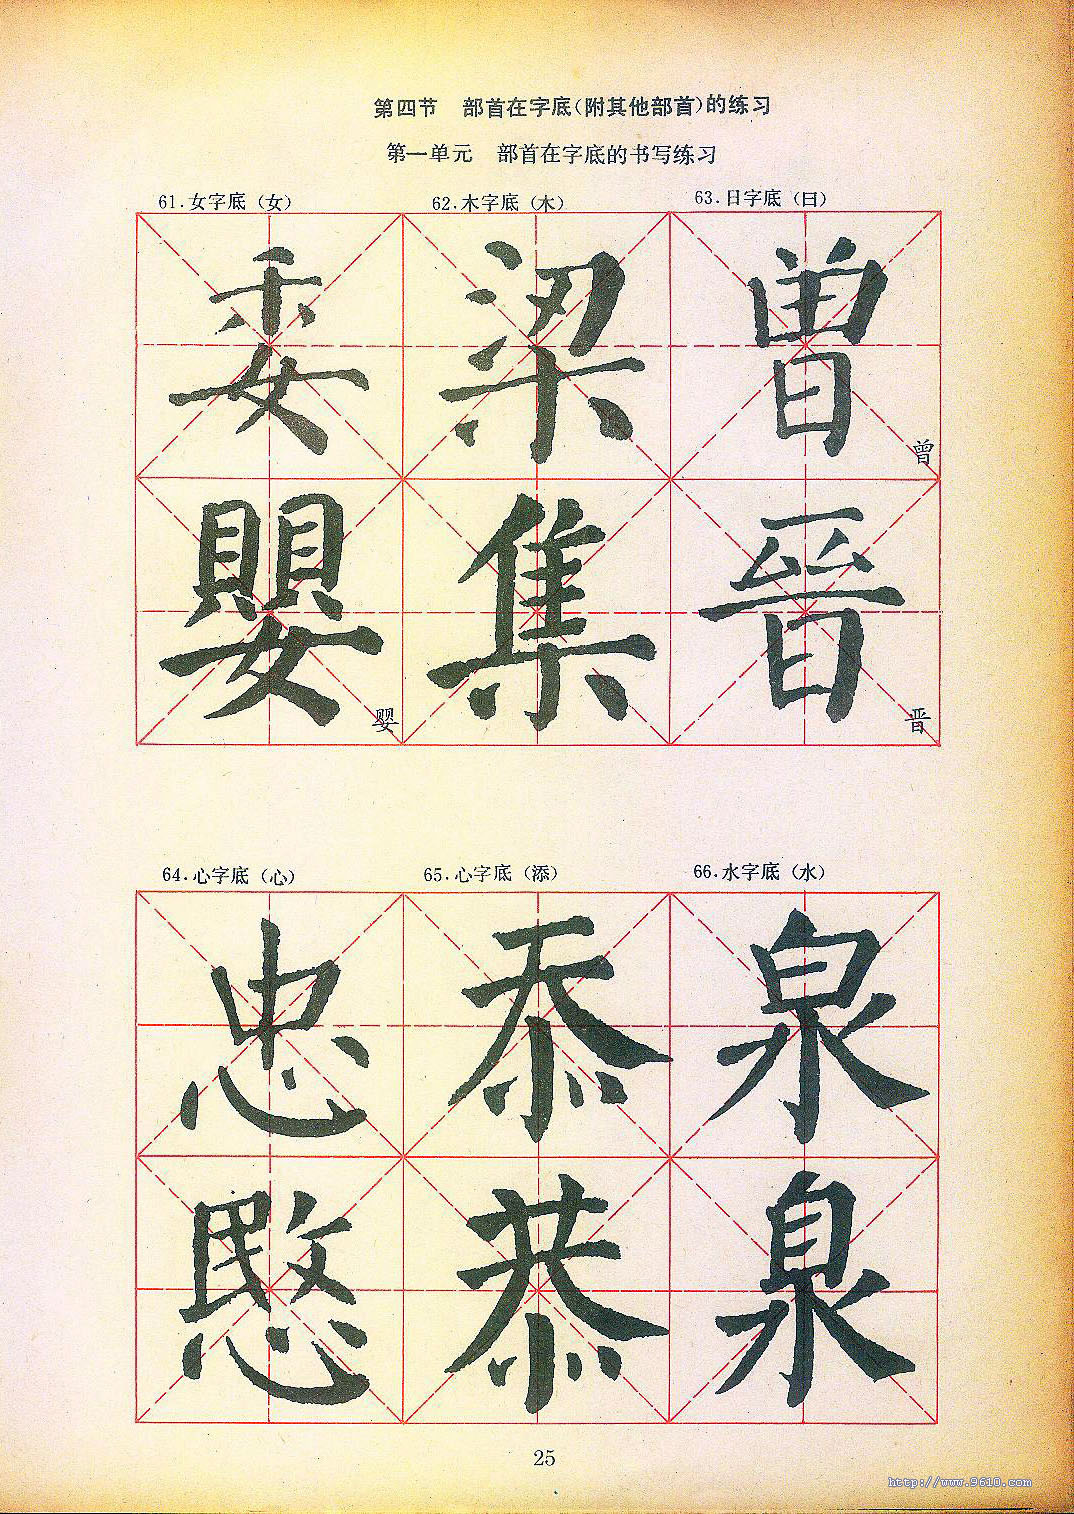 第四节 部首在字底(附其他部首)的练习
第一单元 部首在字底的书写练习
61.女字底(女) 62.木字底(木) 63.日字底(日)
委 梁 曾 曾
嬰 婴 集 晉 晋
64.心字底(心) 65.心字底(添) 66.水字底(水)
忠 忝 泉
愍 恭 泉
25
http://www.9610.com